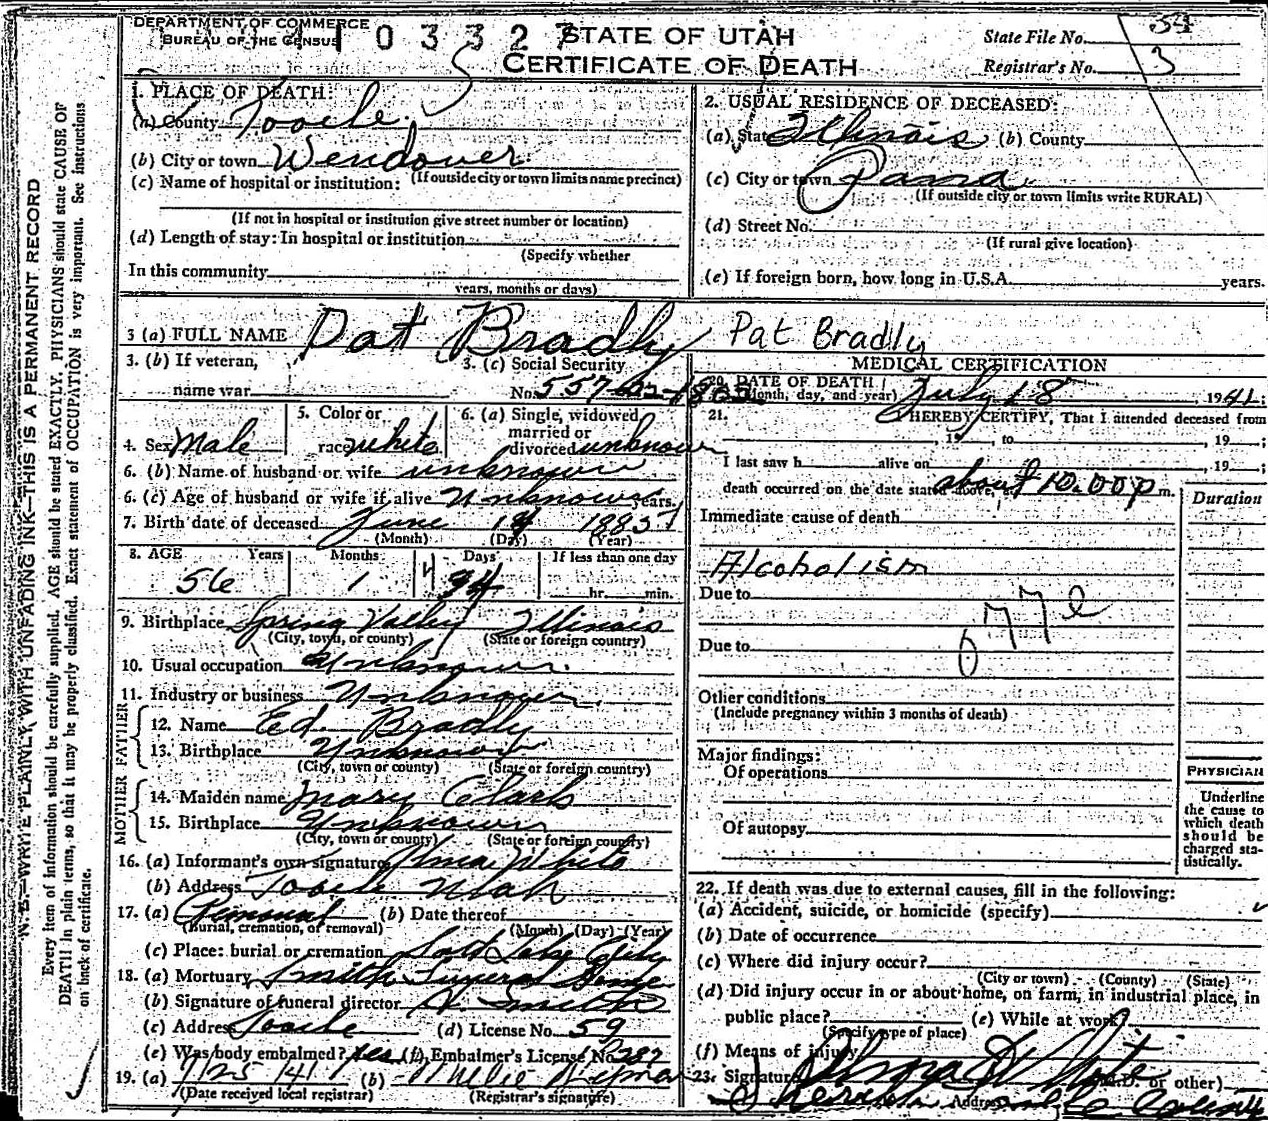 DEPARTMENT OF COMMERCE
BUREAU OF THE CENSUS
0 3 3 2 7
STATE OF UTAH
CERTIFICATE OF DEATH
State File No. 54
Registrar's No. 3
N. B.—WRITE PLAINLY, WITH UNFADING INK—THIS IS A PERMANENT RECORD
Every item of information should be carefully supplied. AGE should be stated EXACTLY. PHYSICIANS should state CAUSE OF
DEATH in plain terms, so that it may be properly classified. Exact statement of OCCUPATION is very important. See instructions
on back of certificate.
1. PLACE OF DEATH:
(a) County Tooele
(b) City or town Wendover
(If outside city or town limits name precinct)
(c) Name of hospital or institution:
(If not in hospital or institution give street number or location)
(d) Length of stay: In hospital or institution
(Specify whether
In this community
years, months or days)
2. USUAL RESIDENCE OF DECEASED:
(a) State Illinois (b) County
(c) City or town Pana
(If outside city or town limits write RURAL)
(d) Street No.
(If rural give location)
(e) If foreign born, how long in U.S.A. years.
3 (a) FULL NAME Pat Bradly Pat Bradly
3. (b) If veteran,
name war
3. (c) Social Security
No. 557-
4. Sex Male
5. Color or
race white
6. (a) Single, widowed
married or
divorced unknown
6. (b) Name of husband or wife unknown
6. (c) Age of husband or wife if alive Unknown years.
7. Birth date of deceased June 14 1885
(Month) (Day) (Year)
8. AGE Years Months Days If less than one day
56 1 4 hr. min.
9. Birthplace Spring Valley Illinois
(City, town, or county) (State or foreign country)
10. Usual occupation Unknown
11. Industry or business Unknown
FATHER
12. Name Ed. Bradly
13. Birthplace Unknown
(City, town or county) (State or foreign country)
MOTHER
14. Maiden name Mary Clark
15. Birthplace Unknown
(City, town or county) (State or foreign country)
16. (a) Informant's own signature Alma White
(b) Address Tooele Utah
17. (a) Removal (b) Date thereof
(Burial, cremation, or removal) (Month) (Day) (Year)
(c) Place: burial or cremation Salt Lake City
18. (a) Mortuary Smith Funeral Home
(b) Signature of funeral director Smith
(c) Address Tooele (d) License No. 59
(e) Was body embalmed? Yes (f) Embalmer's License No. 282
19. (a) 7/25/41 (b) Millie
(Date received local registrar) (Registrar's signature)
MEDICAL CERTIFICATION
20. DATE OF DEATH
(Month, day, and year) July 18, 1941;
21. I HEREBY CERTIFY, That I attended deceased from
, 19 , to , 19 ;
I last saw h alive on , 19 ;
death occurred on the date stated above, at about 10.00 p m.
Duration
Immediate cause of death
Alcoholism
Due to
077e
Due to
Other conditions
(Include pregnancy within 3 months of death)
Major findings:
Of operations
Of autopsy
PHYSICIAN
Underline
the cause to
which death
should be
charged sta-
tistically.
22. If death was due to external causes, fill in the following:
(a) Accident, suicide, or homicide (specify)
(b) Date of occurrence
(c) Where did injury occur?
(City or town) (County) (State)
(d) Did injury occur in or about home, on farm, in industrial place, in
public place?
(Specify type of place)
(e) While at work?
(f) Means of injury
23. Signature Alma White (M.D. or other)
Sheriff Address Tooele County